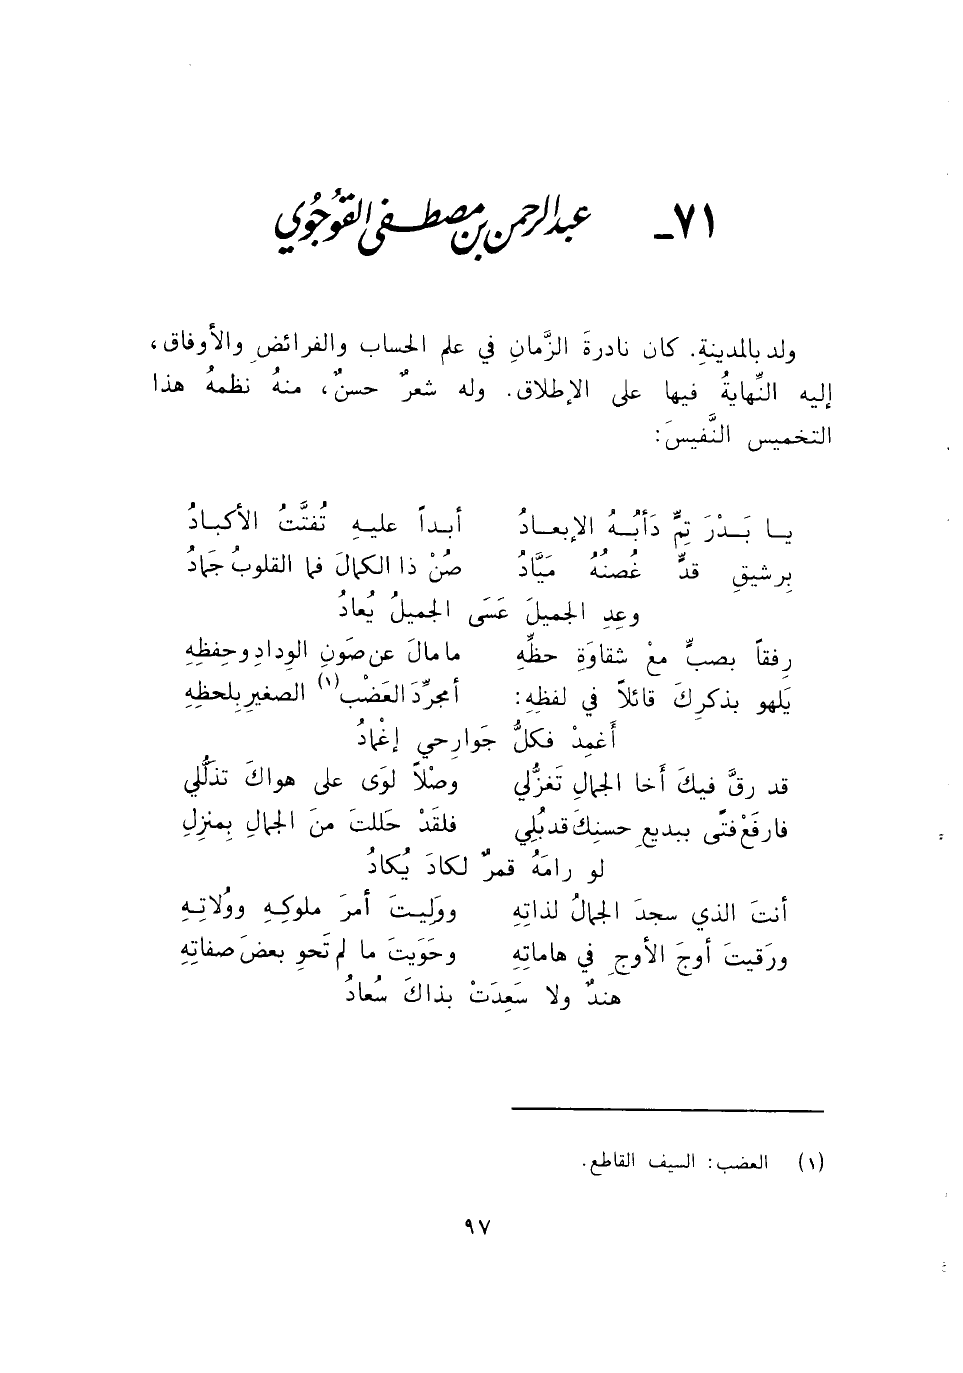 ٧١ـ عبد الرحمن بن مصطفى القوجوي
ولد بالمدينةِ. كان نادرةَ الزَّمانِ في علم الحساب والفرائضِ والأوفاق،
إليه النِّهايةُ فيها على الإطلاق. وله شعرٌ حسنٌ، منهُ نظمهُ هذا
التخميس النَّفيسَ:
يا بَدْرَ تِمٍّ دَأبُهُ الإبعادُ أبداً عليهِ تُفتَّتُ الأكبادُ
بِرشيقِ قدٍّ غُصنُهُ ميَّادُ صُنْ ذا الكمالَ فما القلوبُ جَمادُ
وعِدِ الجميلَ عَسَى الجميلُ يُعادُ
رِفقاً بصبٍّ معْ شقاوَةِ حظِّهِ ما مالَ عن صَونِ الوِدادِ وحِفظِهِ
يَلهو بذكرِكَ قائلاً في لفظِهِ: أمجرِّدَ العَضْب(١) الصغيرِ بِلحظِهِ
أَغمِدْ فكلُّ جَوارِحي إغْمادُ
قد رقَّ فيكَ أَخا الجمالِ تَغزُّلي وصْلاً لوَى على هواكَ تذلُّلي
فارفَعْ فتًى ببديعِ حسنِكَ قد بُلِي فلقَدْ حَللتَ منَ الجمالِ بِمنزِلِ
لو رامَهُ قمرٌ لكادَ يُكادُ
أنتَ الذي سجدَ الجمالُ لذاتِهِ ووَليتَ أمرَ ملوكِهِ ووُلاتِهِ
ورَقيتَ أوجَ الأوجِ في هاماتِهِ وحَوَيتَ ما لم تَحوِ بعضَ صفاتِهِ
هندٌ ولا سَعِدَتْ بذاكَ سُعادُ
(١) العضب: السيف القاطع.
٩٧